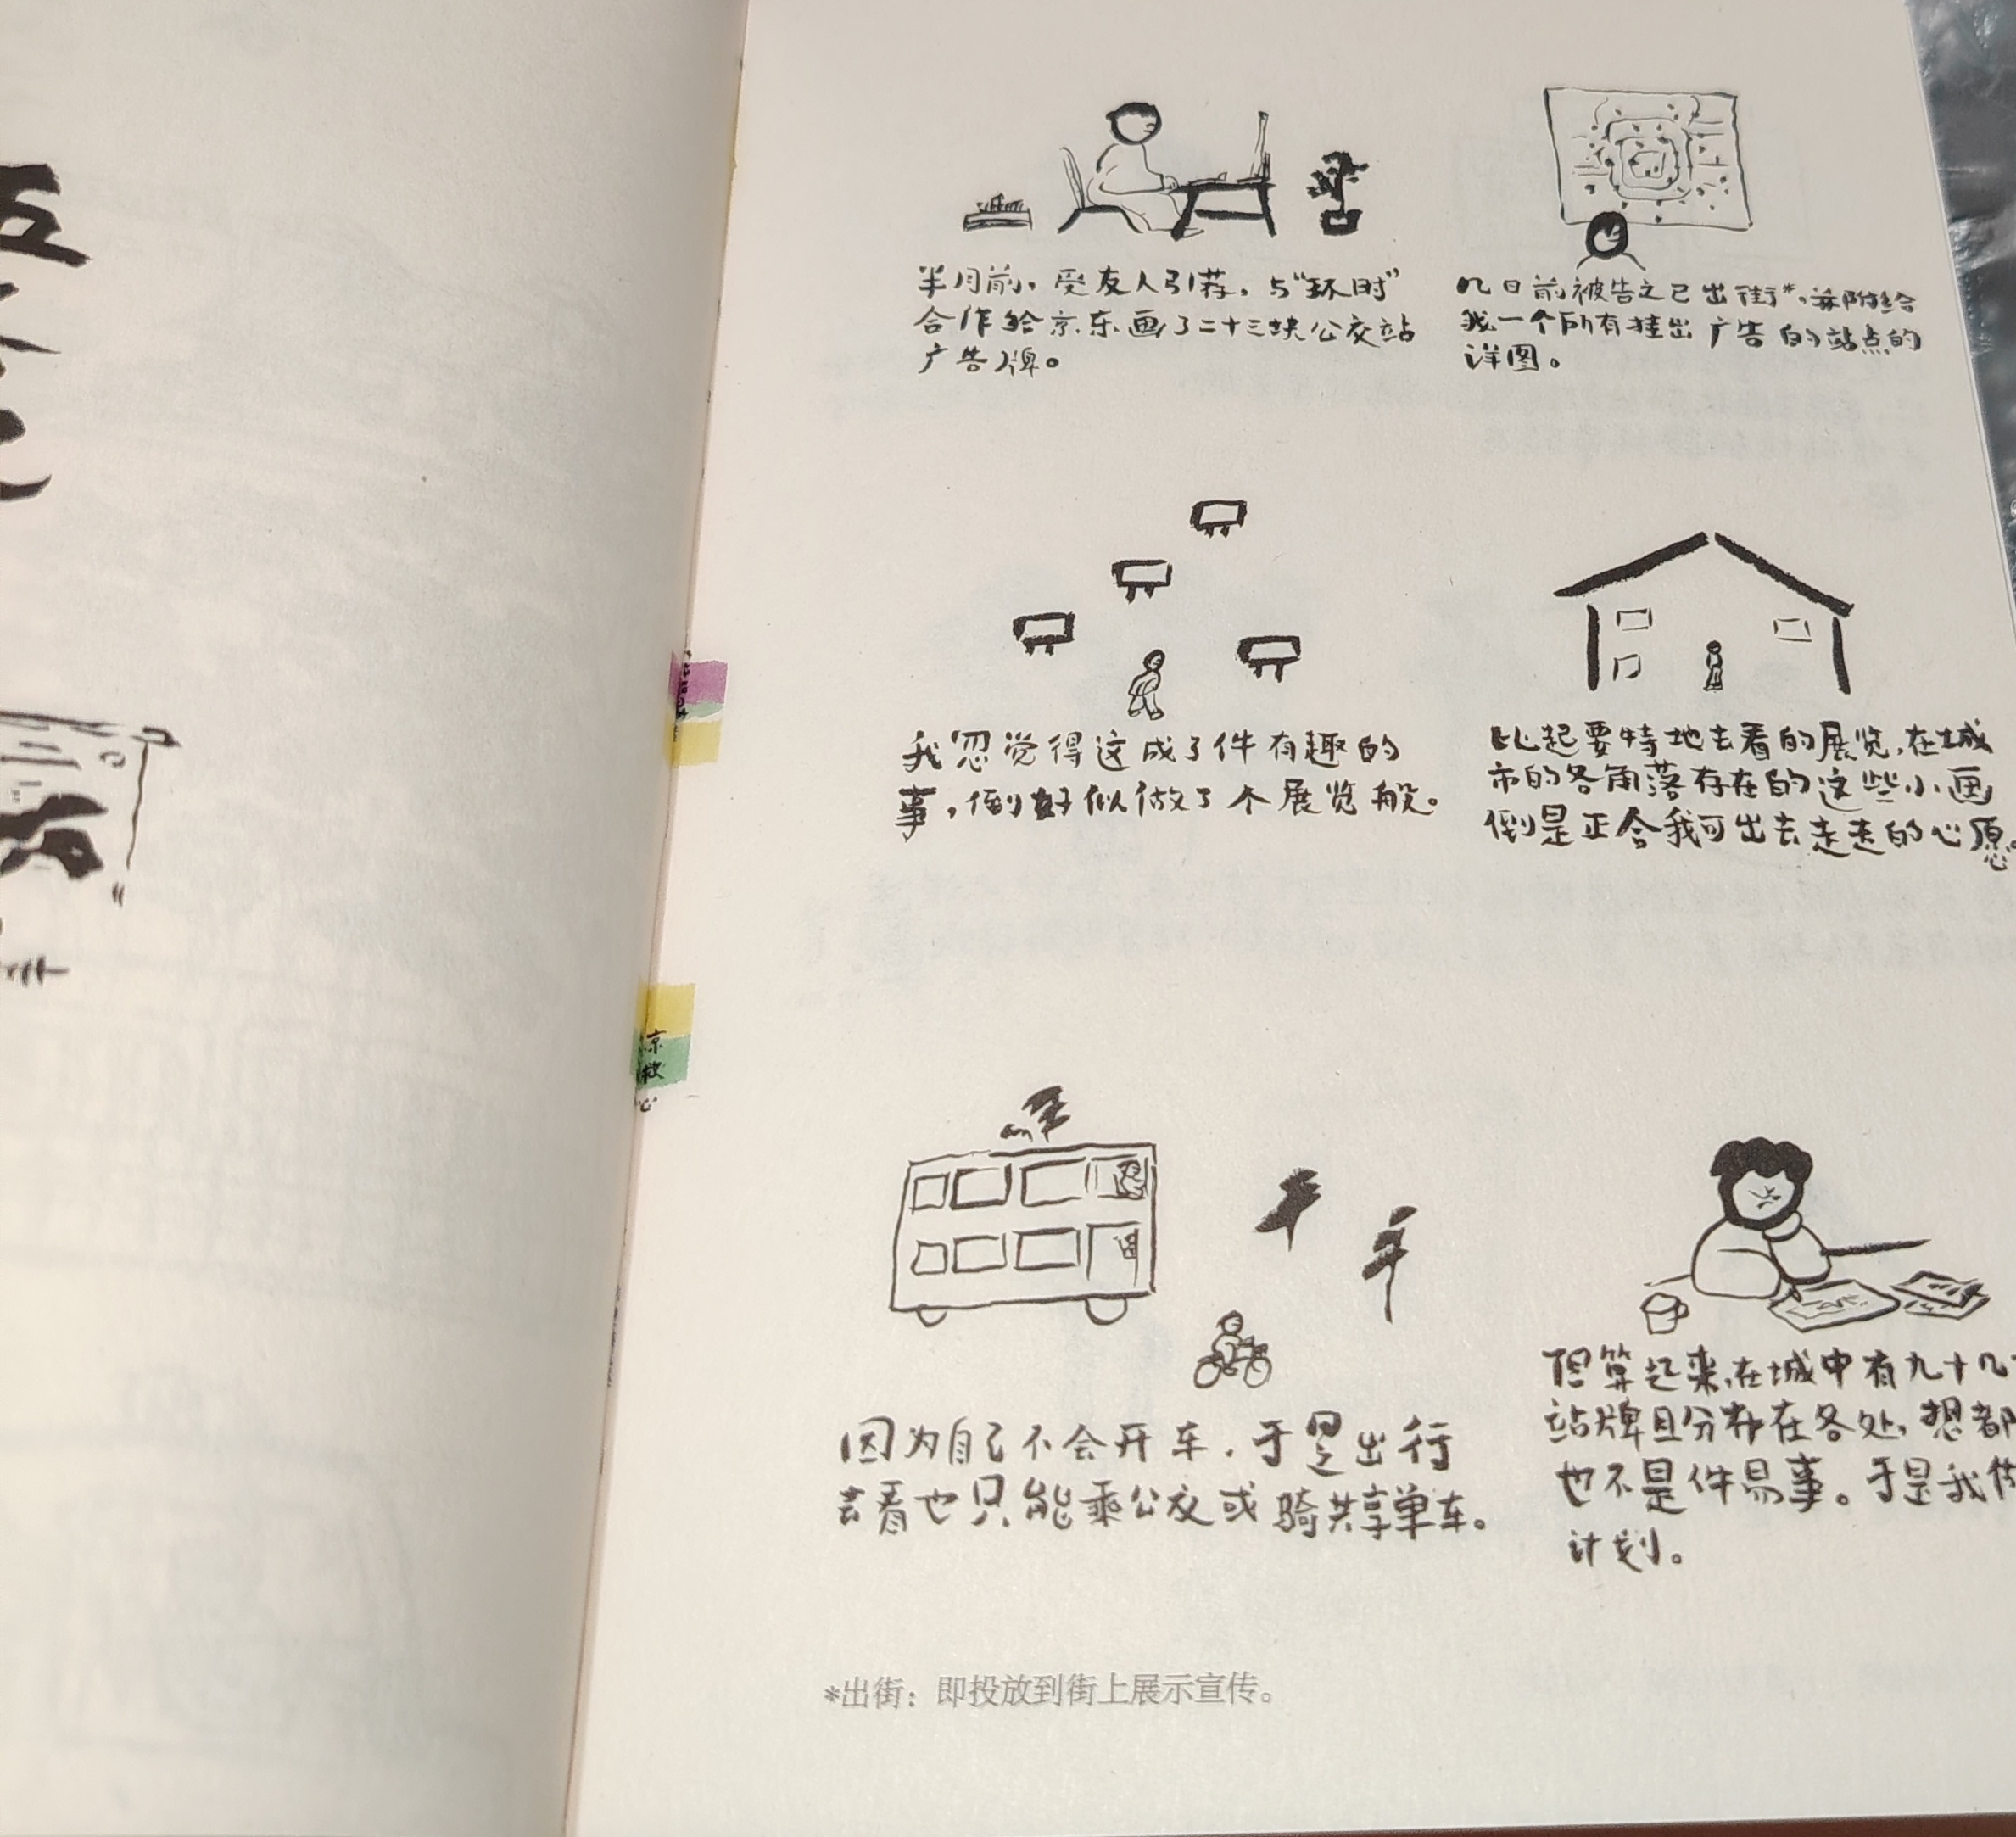 半月前，受友人引荐，与“环时”
合作给京东画了二十三块公交站
广告牌。
几日前被告之已出街*，并附给
我一个所有挂出广告的站点的
详图。
我忽觉得这成了件有趣的
事，倒好似做了个展览般。
比起要特地去看的展览，在城
市的各角落存在的这些小画
倒是正合我可出去走走的心愿。
因为自己不会开车，于是出行
去看也只能乘公交或骑共享单车。
但算起来，在城中有九十几
站牌且分布在各处，想都
也不是件易事。于是我
计划。
*出街：即投放到街上展示宣传。